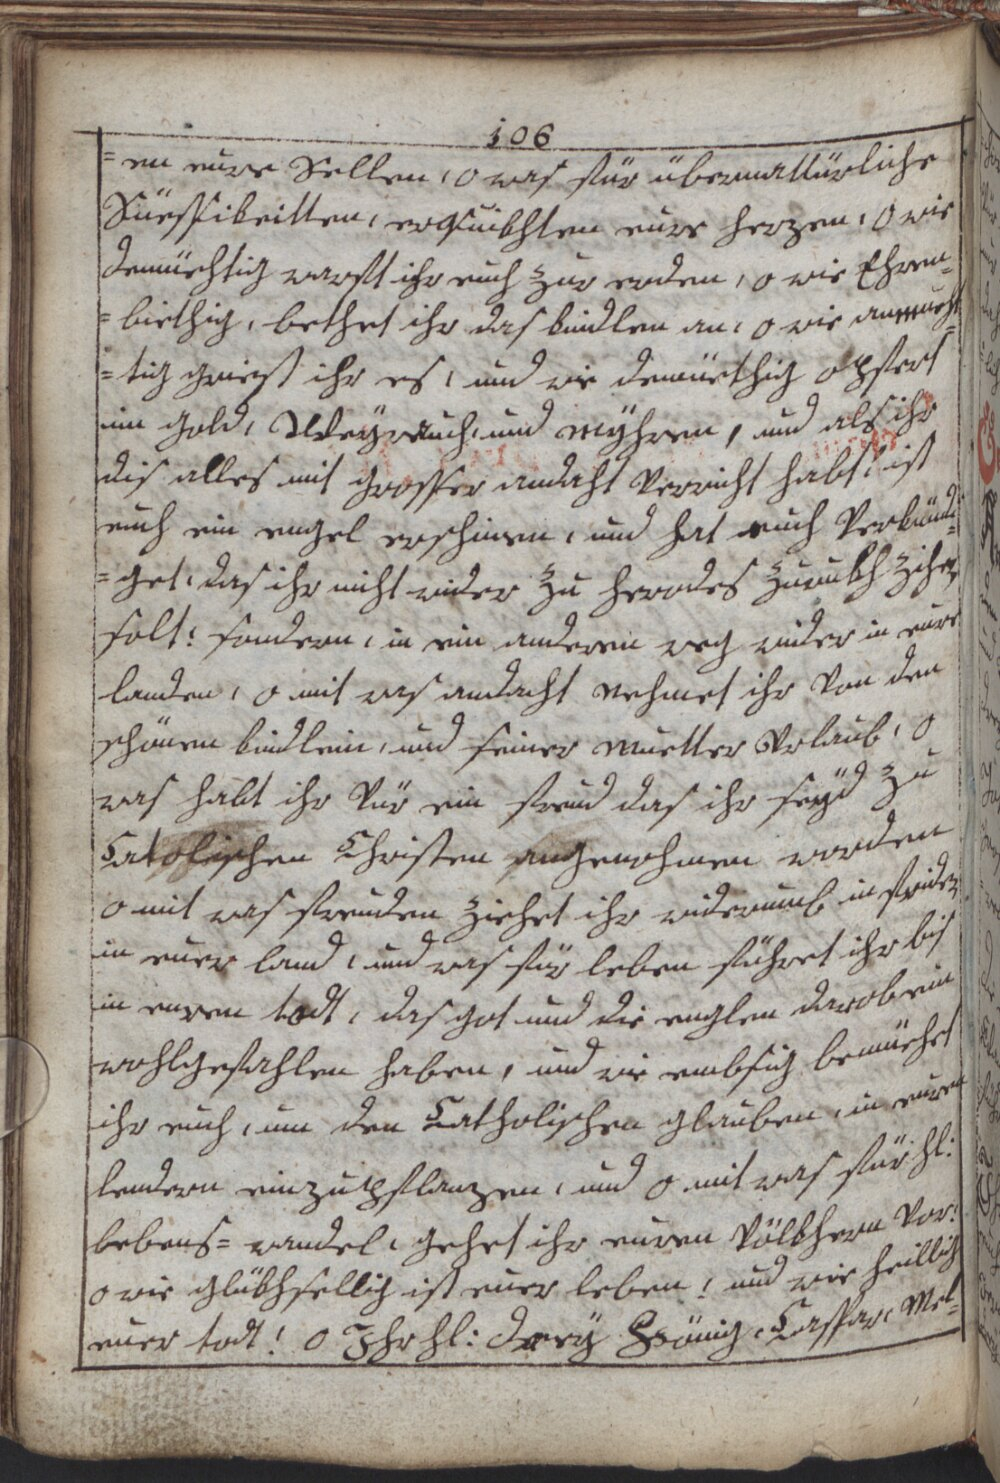 106
=en eure Sellen, o was für übernattürliche
Süessikeitten, erquikhten eure herzen, O wie
demüehtig warft ihr euch zur erden, o wie Ehren=
=biethig, bethet ihr das kindlen an, o wie anmüeht
=tig griest ihr es, und wie demüethig opfert
im gold, Weyrauch, und Myhren, und als ihr
dis alles mit grosser andaht verricht habt, ist
euch ein engel erschinen, und hat euch verkünd=
=get, das ihr nicht wider zu herodes zurukh zihen
solt, sondern, in ein anderen weg wider in eure
landen, o mit was andacht nehmet ihr von den
schönen kindlein, und seiner Muetter Urlaub, O
was habt ihr vür ein freud das ihr seyd zu
Catolischen Christen angenohmen worden
o mit was freuden ziehet ihr widerumb in friden
in euer land, und was für leben führet ihr bis
in euren todt, das got und die englen darob ein
wohlgefahlen haben, und wie embsig bemüehet
ihr euch, um den Catholischen glauben, in euren
lendern einzupflanzen, und o mit was für hl:
lebens= wandel, gehet ihr euren völkhern vor!
o wie glükhsellig ist euer leben! und wie heillig
euer todt! O Ihr hl: drey König, Casspar, Mel=